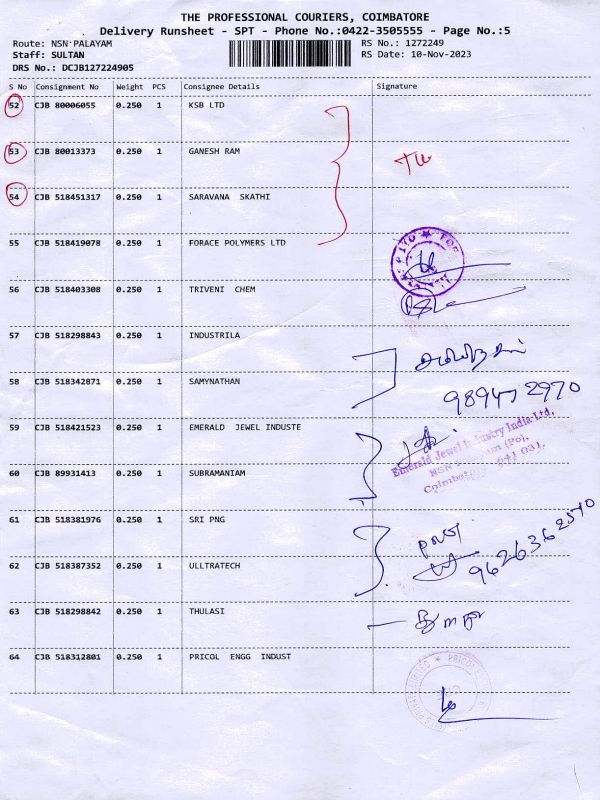 THE PROFESSIONAL COURIERS, COIMBATORE
Delivery Runsheet - SPT - Phone No.:0422-3505555 - Page No.:5
Route: NSN PALAYAM RS No.: 1272249
Staff: SULTAN RS Date: 10-Nov-2023
DRS No.: DCJB127224905
S No Consignment No Weight PCS Consignee Details Signature
52 CJB 80006055 0.250 1 KSB LTD
53 CJB 80013373 0.250 1 GANESH RAM
54 CJB 518451317 0.250 1 SARAVANA SKATHI
55 CJB 518419078 0.250 1 FORACE POLYMERS LTD
56 CJB 518403308 0.250 1 TRIVENI CHEM
57 CJB 518298843 0.250 1 INDUSTRILA
58 CJB 518342871 0.250 1 SAMYNATHAN
989472970
59 CJB 518421523 0.250 1 EMERALD JEWEL INDUSTE
Emerald Jewel Industry India Ltd,
NSN (Po),
Coimbat 641 031.
60 CJB 89931413 0.250 1 SUBRAMANIAM
61 CJB 518381976 0.250 1 SRI PNG
PNG
9626362570
62 CJB 518387352 0.250 1 ULLTRATECH
63 CJB 518298842 0.250 1 THULASI
64 CJB 518312801 0.250 1 PRICOL ENGG INDUST
PRICOL